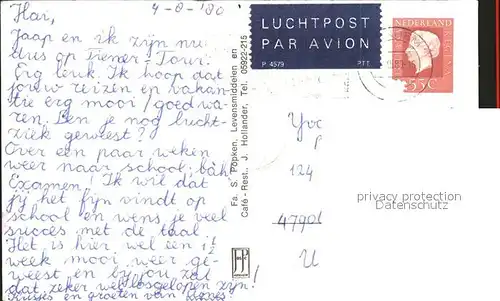 Hai,
4-8-'80
Jaap en ik zijn nu
dus op Tiener-Tour!
Erg leuk. Ik hoop dat
jouw reizen en vakan-
tie erg mooi/goed wa-
ren. Ben je nog lucht-
ziek geweest?
Over een paar weken
weer naar school, bah
Examen. Ik wil dat
jij het fijn vindt op
school en wens je veel
succes met de taal.
Het is hier wel een
week mooi weer ge-
weest en bij jou zal
dat zeker wel losgelopen zijn!
Kusjes en groeten van
Fa. S. Popken, Levensmiddelen en
Café - Rest., J. Hollander, Tel. 05922-215
LUCHTPOST
PAR AVION
P 4579 PTT
NEDERLAND
55C
124
47906
U
privacy protection
Datenschutz